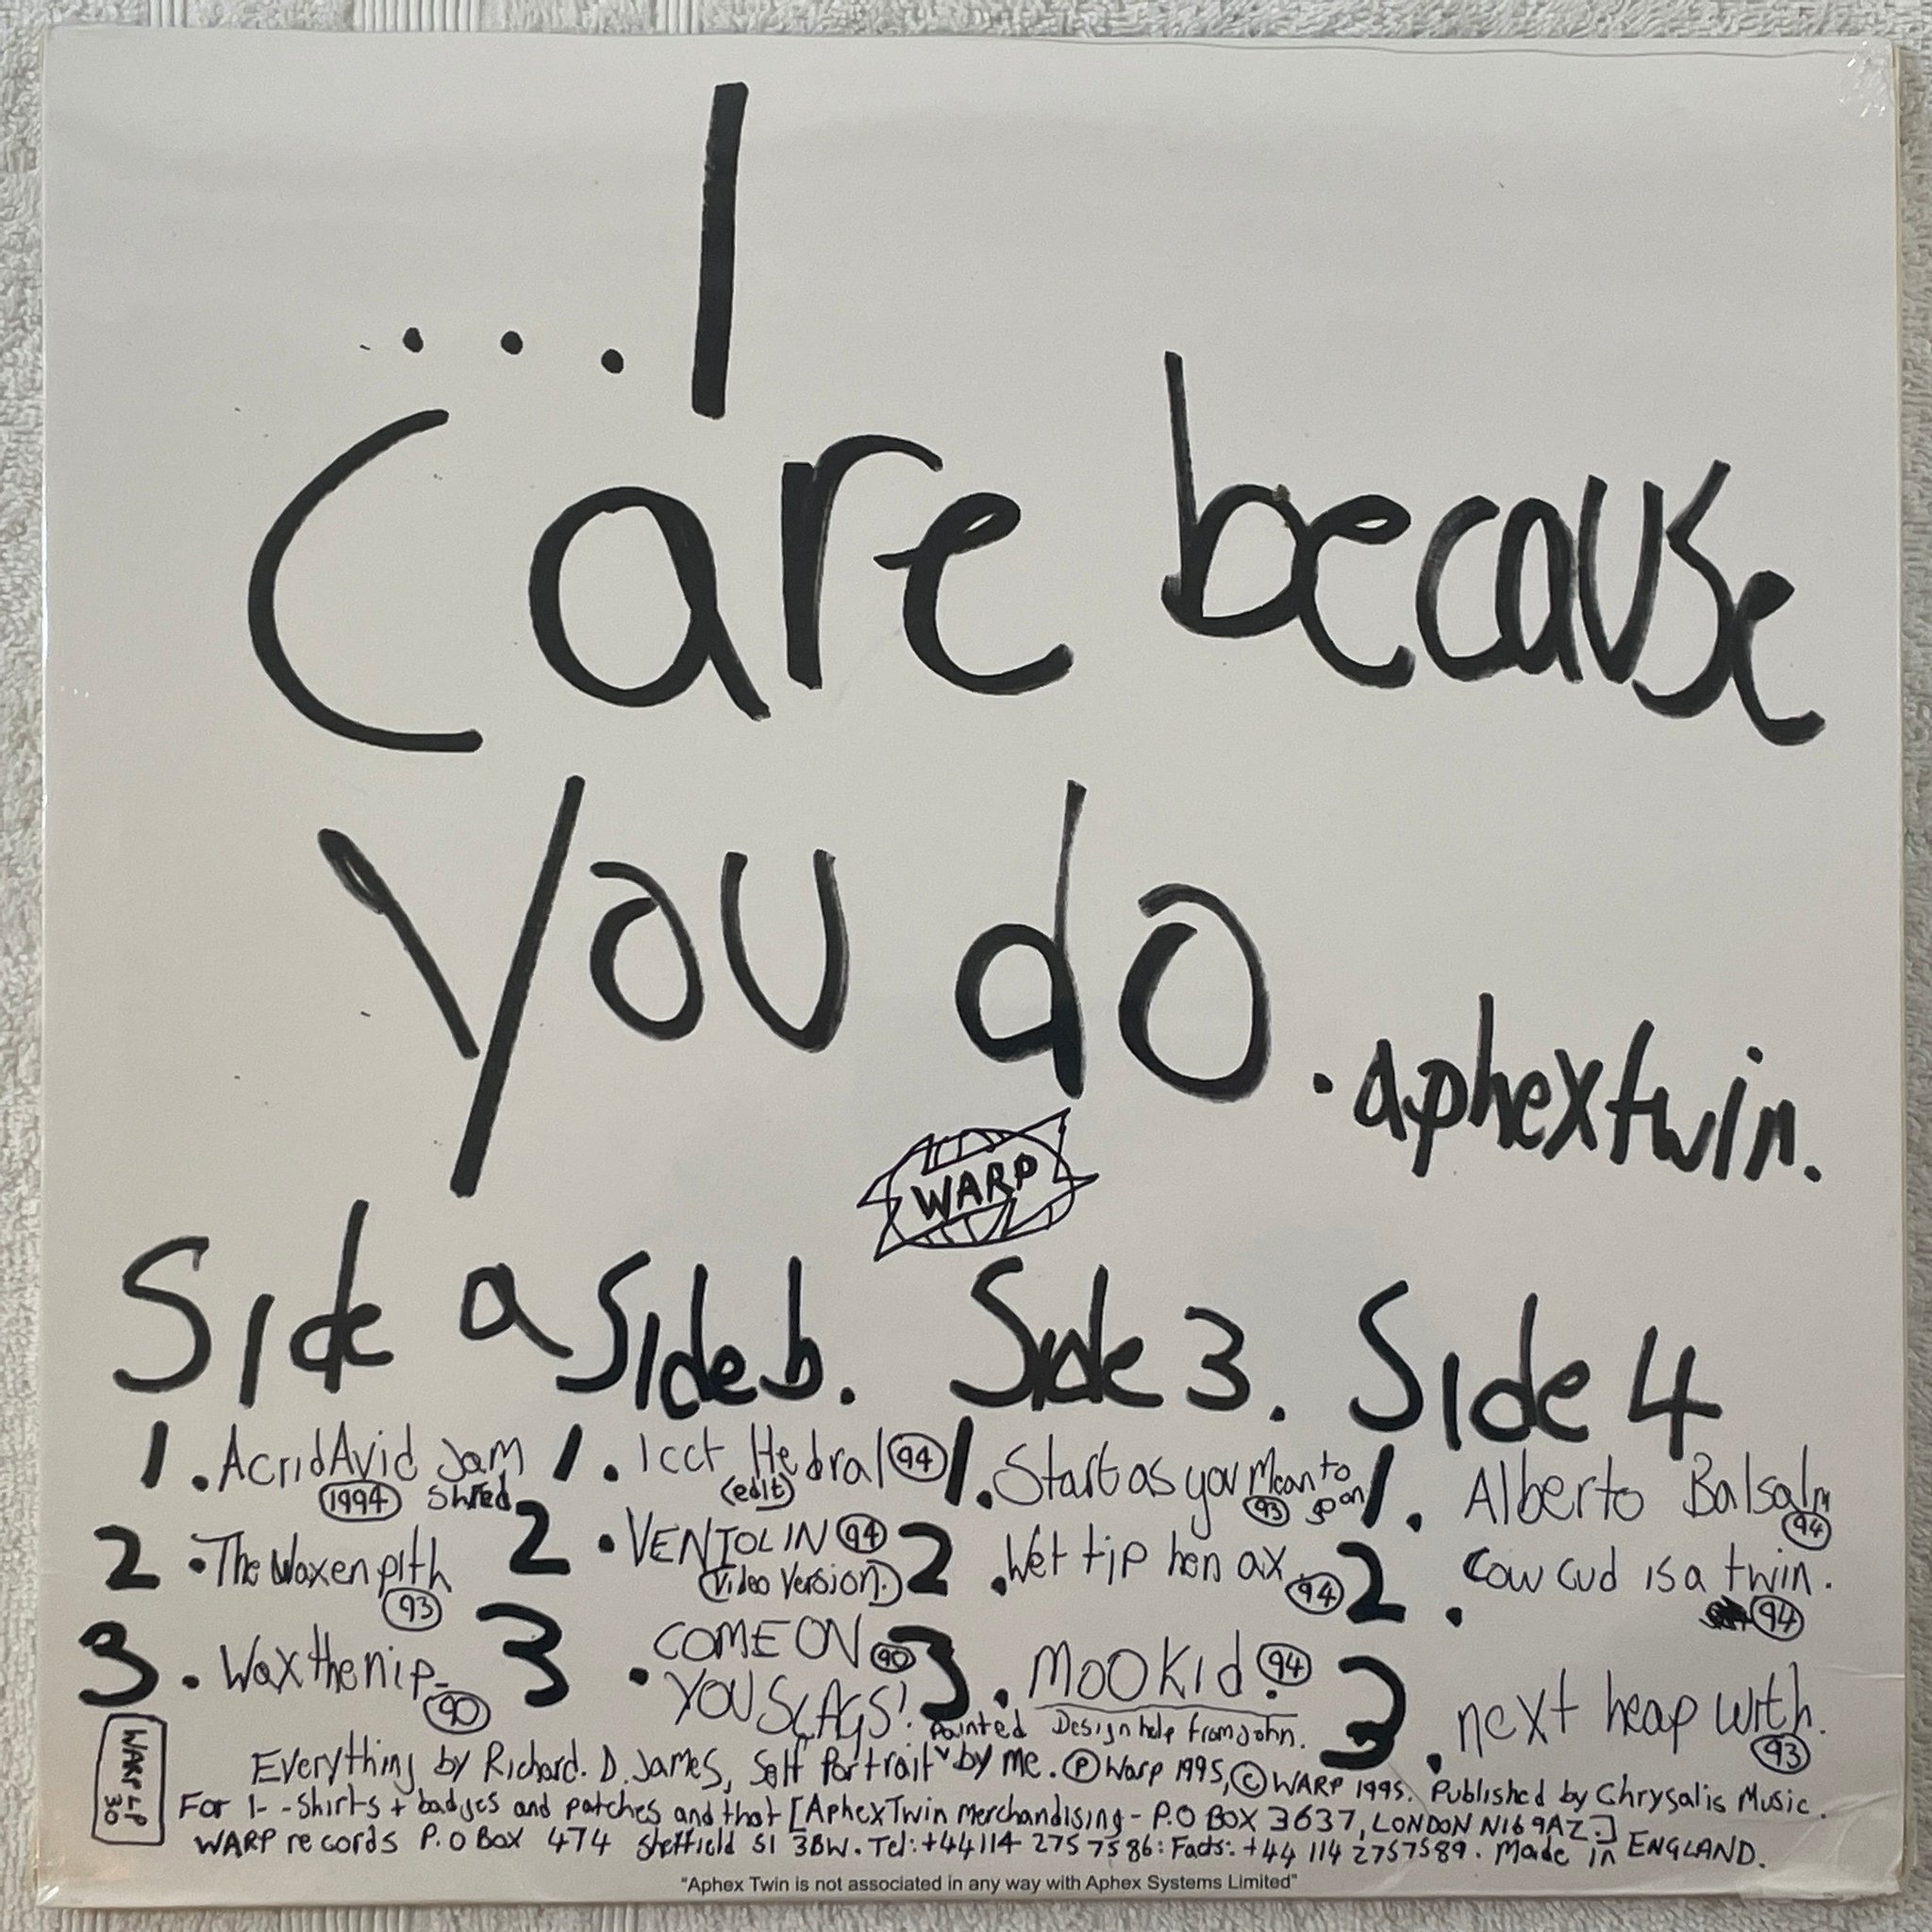 ...I
Care because
You do.
aphextwin.
WARP
Side a
1. AcridAvid Jam
1994 Shred
2. The Waxen pith
93
3. Wax the nip
90
Side b.
1. Icct Hedral 94
(edit)
2. VENTOLIN 94
(Video Version.)
3. COME ON 90
YOU SLAGS!
Side 3.
1. Start as you Mean to
93 go on
2. Wet tip hen ax
94
3. MOOKid. 94
Side 4
1. Alberto Balsalm
94
2. Cow cud is a twin.
94
3. next heap with.
93
WARP LP
30
Painted Design help from John.
Everything by Richard. D. James, Self Portrait by Me. Ⓟ Warp 1995, © WARP 1995. Published by Chrysalis Music.
For T--Shirts + badges and patches and that [AphexTwin Merchandising - P.O BOX 3637, LONDON N16 9AZ.]
WARP records P.O Box 474 Sheffield S1 3BW. Tel: +44 114 275 7586: Facts: +44 114 2757589. Made in ENGLAND.
"Aphex Twin is not associated in any way with Aphex Systems Limited"